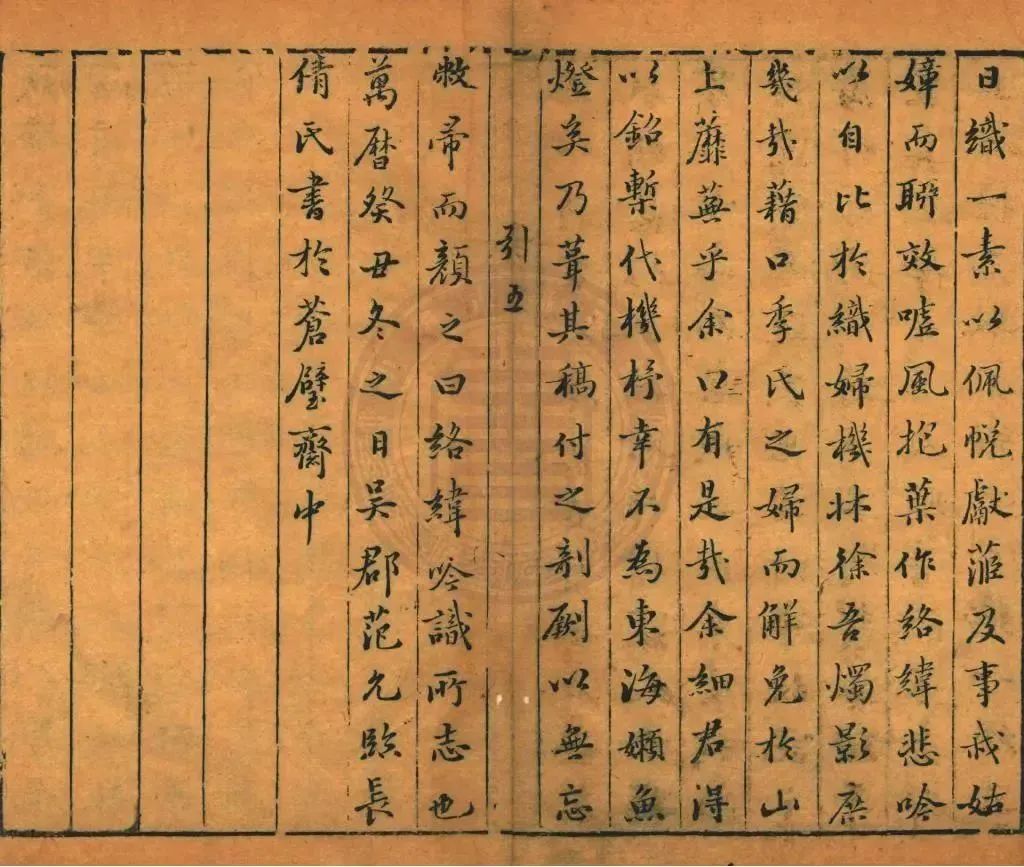 日織一素以佩帨獻茝及事哉姑
嫜而聊效噓風抱葉作絡緯悲吟
以自比於織婦機牀徐吾燭影庶
幾哉藉口季氏之婦而解免於山
上蘼蕪乎余口有是哉余細君得
以鉛槧代機杼幸不為東海嬾魚
燈矣乃葺其稿付之剞劂以無忘
引五
敝帚而顏之曰絡緯吟識所志也
萬曆癸丑冬之日吳郡范允臨長
倩氏書於蒼璧齋中